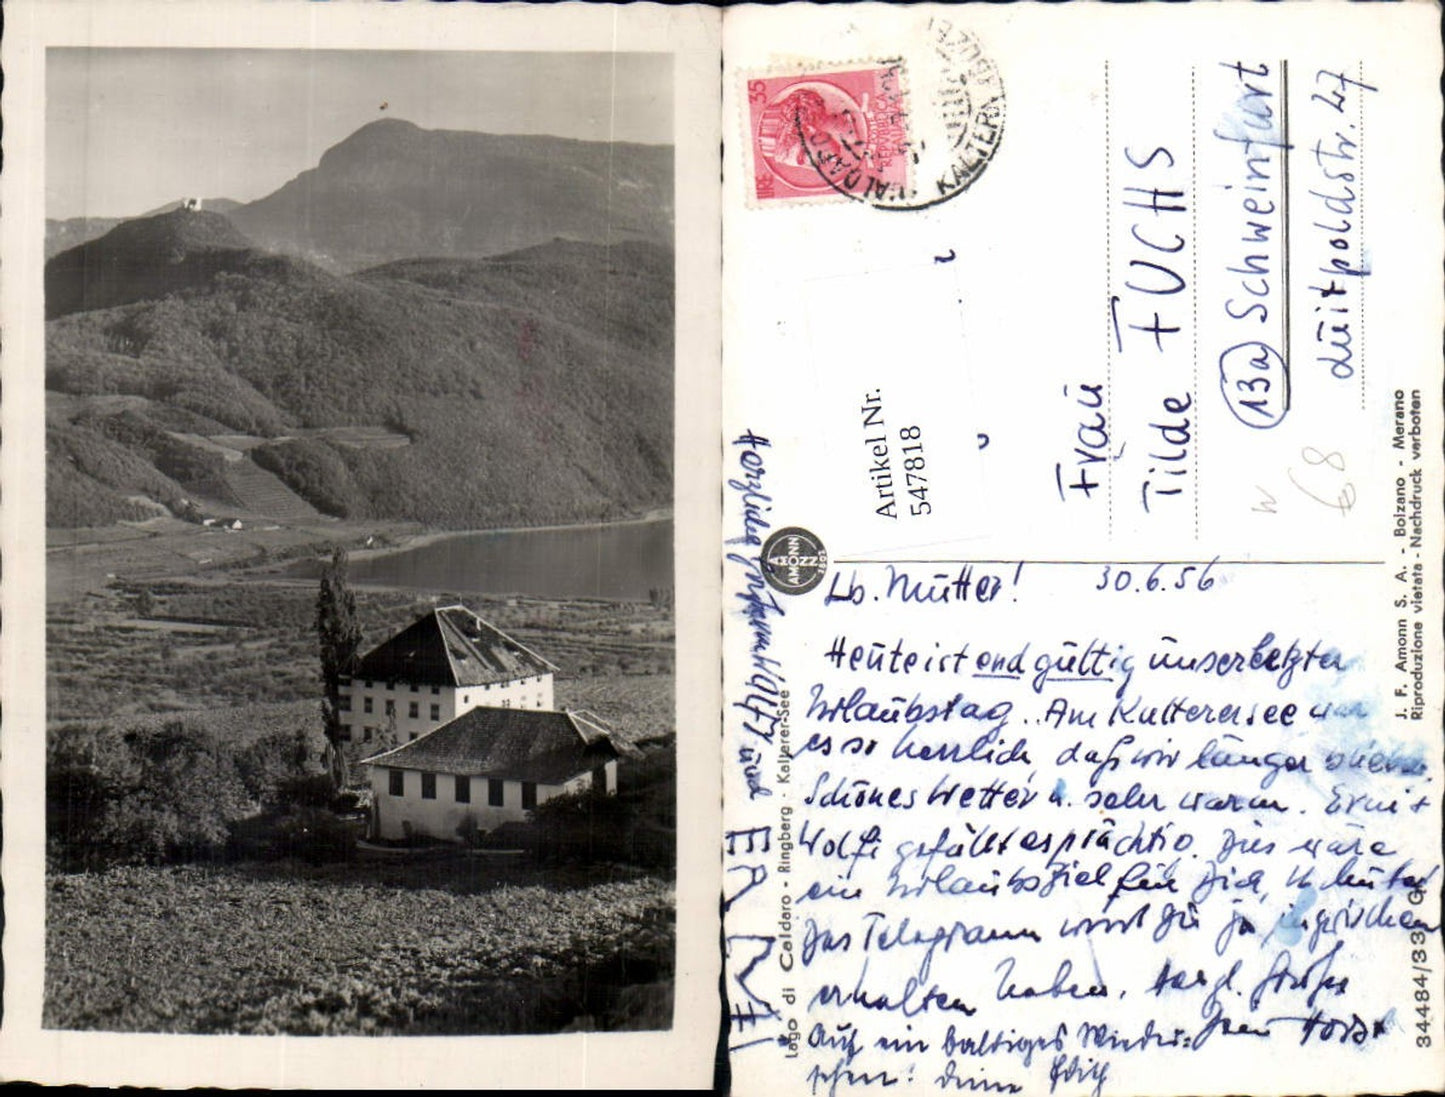 LIRE 35
REPVBBLICA
CALDARO
KALTERN
Artikel Nr.
547818
Frau
Tilde FUCHS
13a Schweinfurt
Luitpoldstr. 27
W
68
AMONN
BOZZ
J. F. Amonn S. A. - Bolzano - Merano
Riproduzione vietata - Nachdruck verboten
34484/33
Lago di Caldaro - Ringberg - Kalterer-See
Lb. Mutter! 30.6.56
Heute ist endgültig unser letzter
Urlaubstag. Am Kalterersee war
es so herrlich, daß wir länger
Schönes Wetter u. sehr warm. Erni +
Wolfi gefällt es prächtig. Dies wäre
ein Urlaubsziel für Dich,
Das Telegramm wirst Du ja inzwischen
erhalten haben. Herzl. Grüße
Dein Horst
Auf ein baldiges Wieder=
sehen! Deine Edith
Herzliche WOLFI und
ERNI